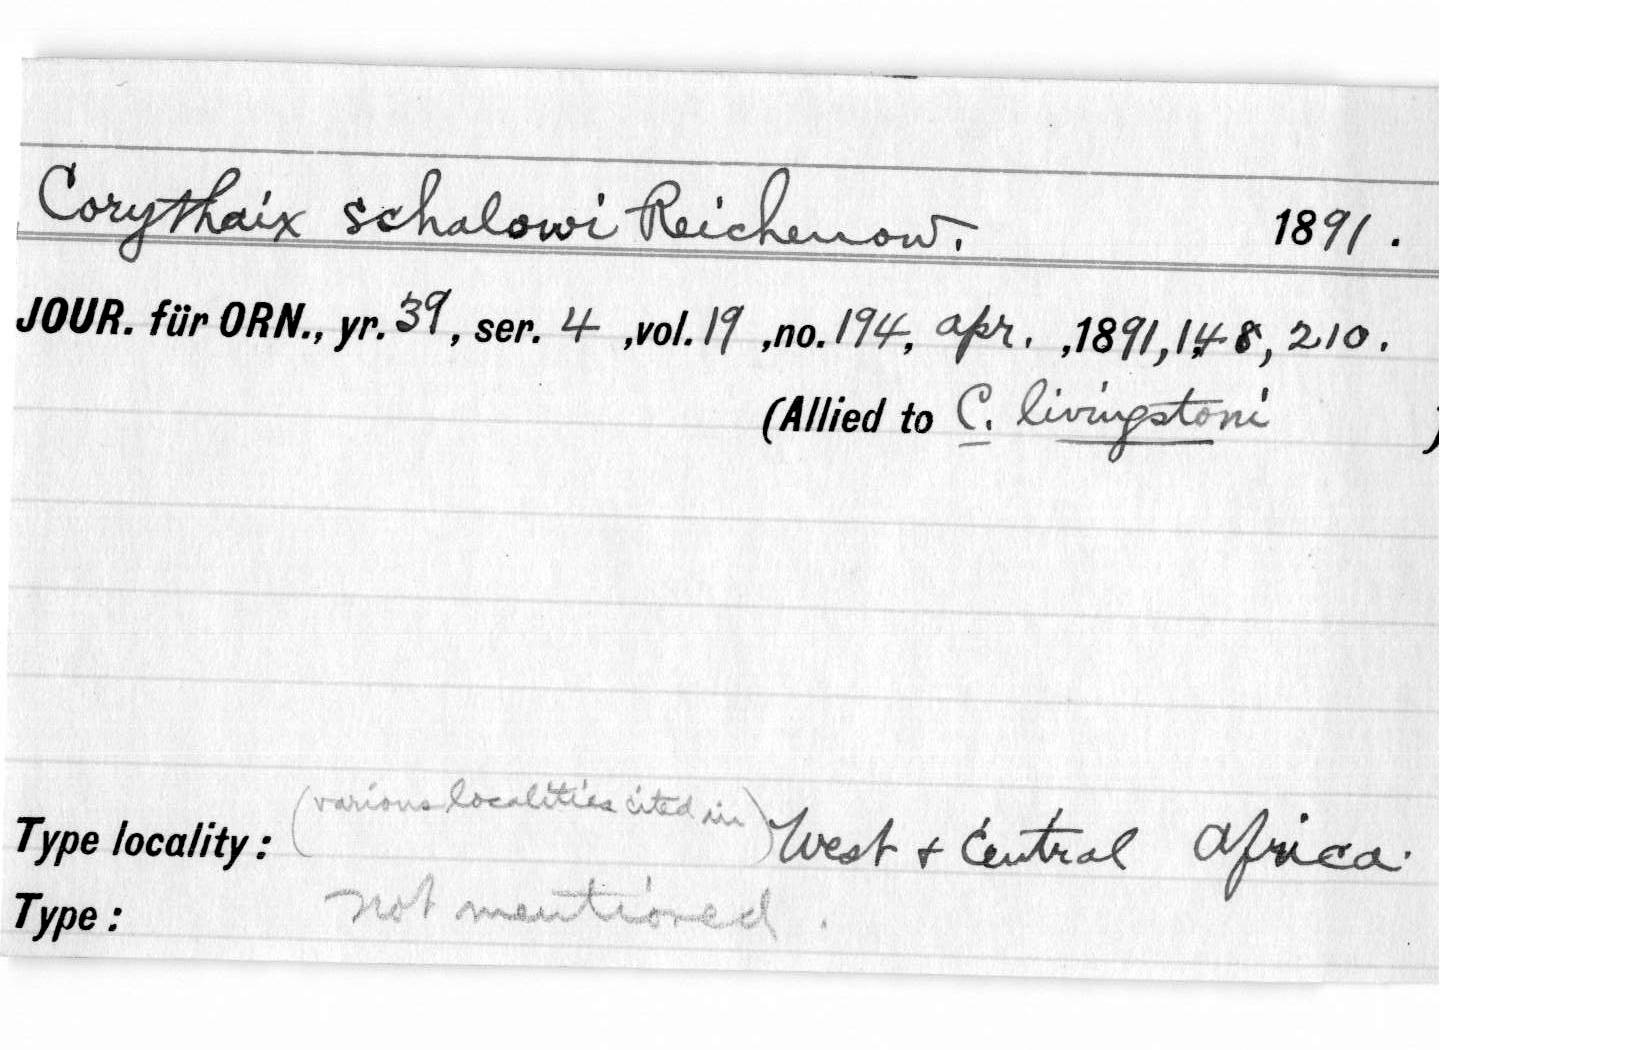 Corythaix schalowi Reichenow. 1891.
JOUR. für ORN., yr. 39, ser. 4 ,vol. 19 ,no. 194, Apr. ,1891, 148, 210.
(Allied to C. livingstoni )
(various localities cited in)
Type locality: West + Central Africa.
Type: not mentioned.